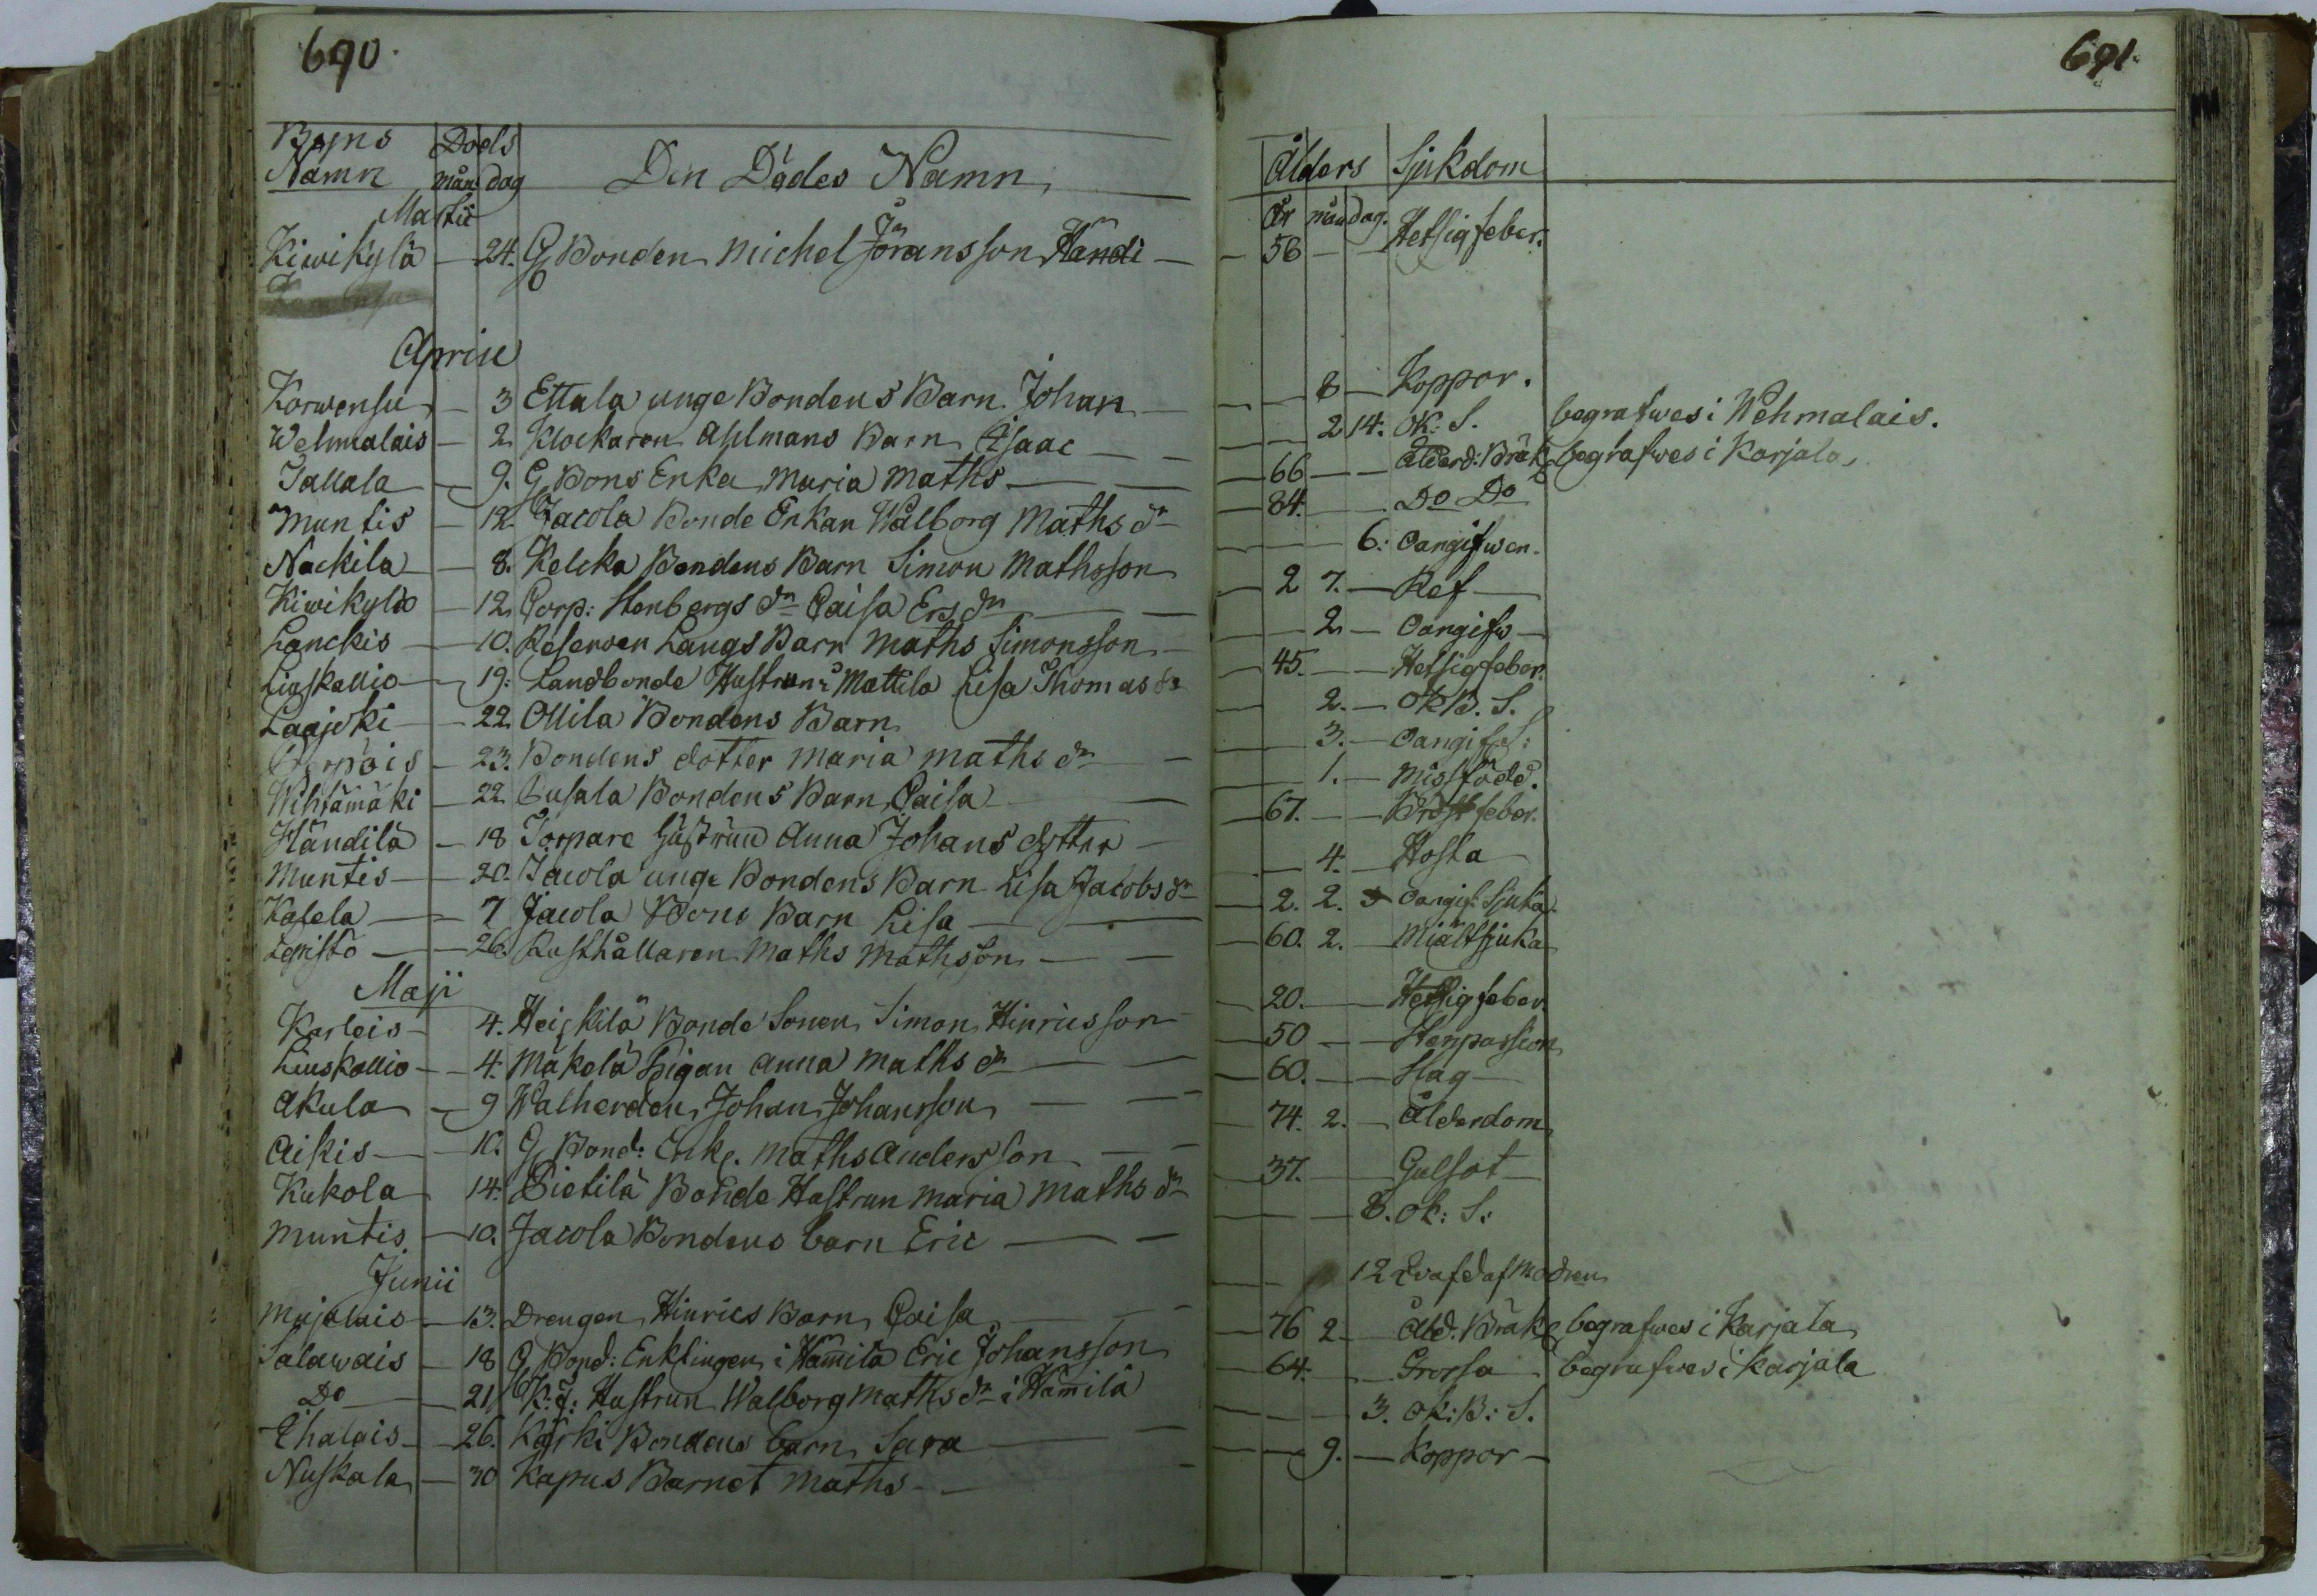 690.
Byns Namn Döds mån dag Den Dödes Namn
Martii
Kiwikylä - 24. G Bonden Michel Jöransson Händi -
Aprill
Korwensu - 3 Ettala unge Bondens Barn Johan -
Wehmalais - 2 Klockaren Ahlmans Barn Isaac - -
Tallala - 9. G Bons Enka Maria Maths - -
Muntis - 12. Jacola Bonde Enkan Walborg Maths dr
Nackila - 8. Kelcka Bondens Barn Simon Mathsson
Kiwikylä - 12. Corp: Stenbergs dr Caisa Ers dr -
Lanckis - 10. Reserven Langs Barn Maths Simonsson -
Liuskallio - 19. Landbonde Hustrun i Mattila Lisa Thomas dr
Laajoki - 22. Ollila Bondens Barn
- 23. Bondens dotter Maria Maths dr -
Wihtämäki - 22. Bondens Barn Caisa -
Händilä - 18 Torpare Hustrun Anna Johans dotter -
Muntis - 20. Jacola unge Bondens Barn Lisa Jacobs dr
Katela - 7 Jacola Bons Barn Lisa -
Lepistö - 26. Rusthållaren Maths Mathsson - -
Maji
Karleis - 4. Heickilä Bonde Sonen Simon Hinricsson
Liuskallio - 4. Mäkelä Pigan Anna Maths dr -
Akula - 9 Johan Johansson -
Aikis - 10. G Bond: Enkl. Maths Andersson -
Kukola 14. Pietilä Bonde Hustrun Maria Maths dr
Muntis - 10. Jacola Bondens barn Eric -
Junii
Majalais - 13. Drengen Hinrics Barn Caisa -
Salawais - 18 G Bond: Enklingen i Hämilä Eric Johansson
Do - 21 Hustrun Walborg Maths dr i Hämilä
Ehalais - 26. Kärki Bondens barn Sara -
Nuskala - 30 Kapus Barnet Maths -
691.
Ålders Sjukdom
År mån dag.
- 56 - - Hetsig feber.
- 8 - Koppor.
- 2 14. Ok: S. begrafwes i Wehmalais.
- 66 - - Ålderd: Bräk begrafwes i Karjala
- 84. - Do Do
- 6. Oangifwen.
- 2 7. - Ref -
- 2 - Oangifw -
- 45. - Hetsig feber.
2. - Ok B. S.
- 3. - Oangif S:
- 1. - Missfödd.
- 67. - - Bröstfeber.
- 4. - Hosta
- 2. 2. Oangif. Sjuka.
- 60. 2. - Mjältsjuka
- 20. - Hetsig feber.
- 50 - - Stenpassion
- 60. - - Slag -
- 74. 2. - Ålderdom
- 37. - Gulsot -
- 8. Ok: S:
- 12 Qvafd af Modren
- 76 2 - Åld. Bräk begrafwes i Karjala
- 64. - Frossa begrafwes i Karjala
- 3. Ok: B: S.
- 9. - Koppor -